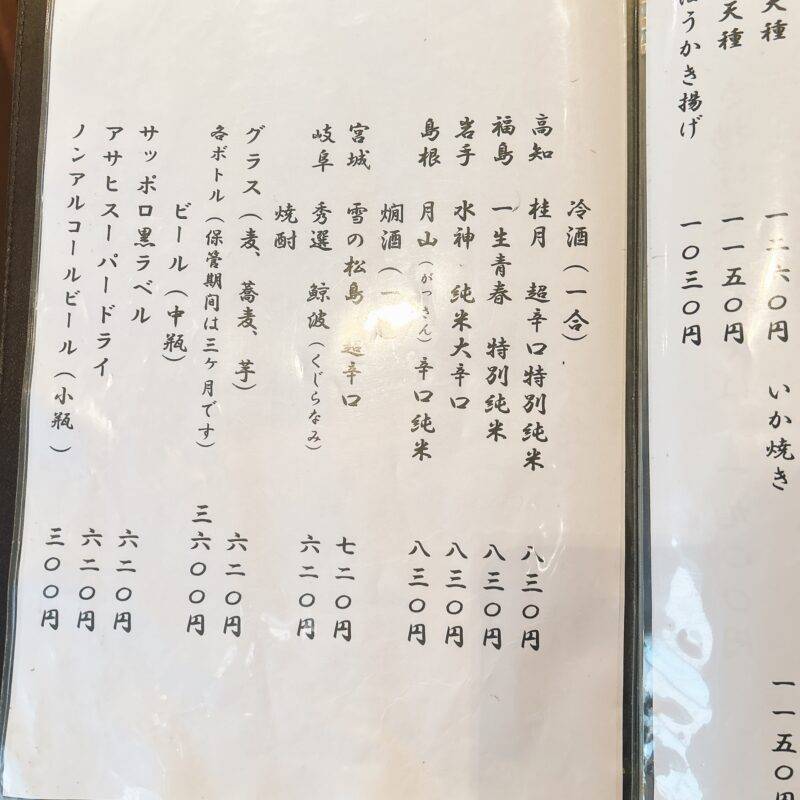 天種
一二六〇円
いか焼き
一一五〇円
天種
一一五〇円
うかき揚げ
一〇三〇円
冷酒（一合）
高知 桂月 超辛口特別純米 八三〇円
福島 一生青春 特別純米 八三〇円
岩手 水神 純米大辛口 八三〇円
島根 月山（がっさん）辛口純米 八三〇円
燗酒（一
宮城 雪の松島 超辛口 七二〇円
岐阜 秀選 鯨波（くじらなみ） 六二〇円
焼酎
グラス（麦、蕎麦、芋） 六二〇円
各ボトル（保管期間は三ヶ月です） 三六〇〇円
ビール（中瓶）
サッポロ黒ラベル 六二〇円
アサヒスーパードライ 六二〇円
ノンアルコールビール（小瓶） 三〇〇円